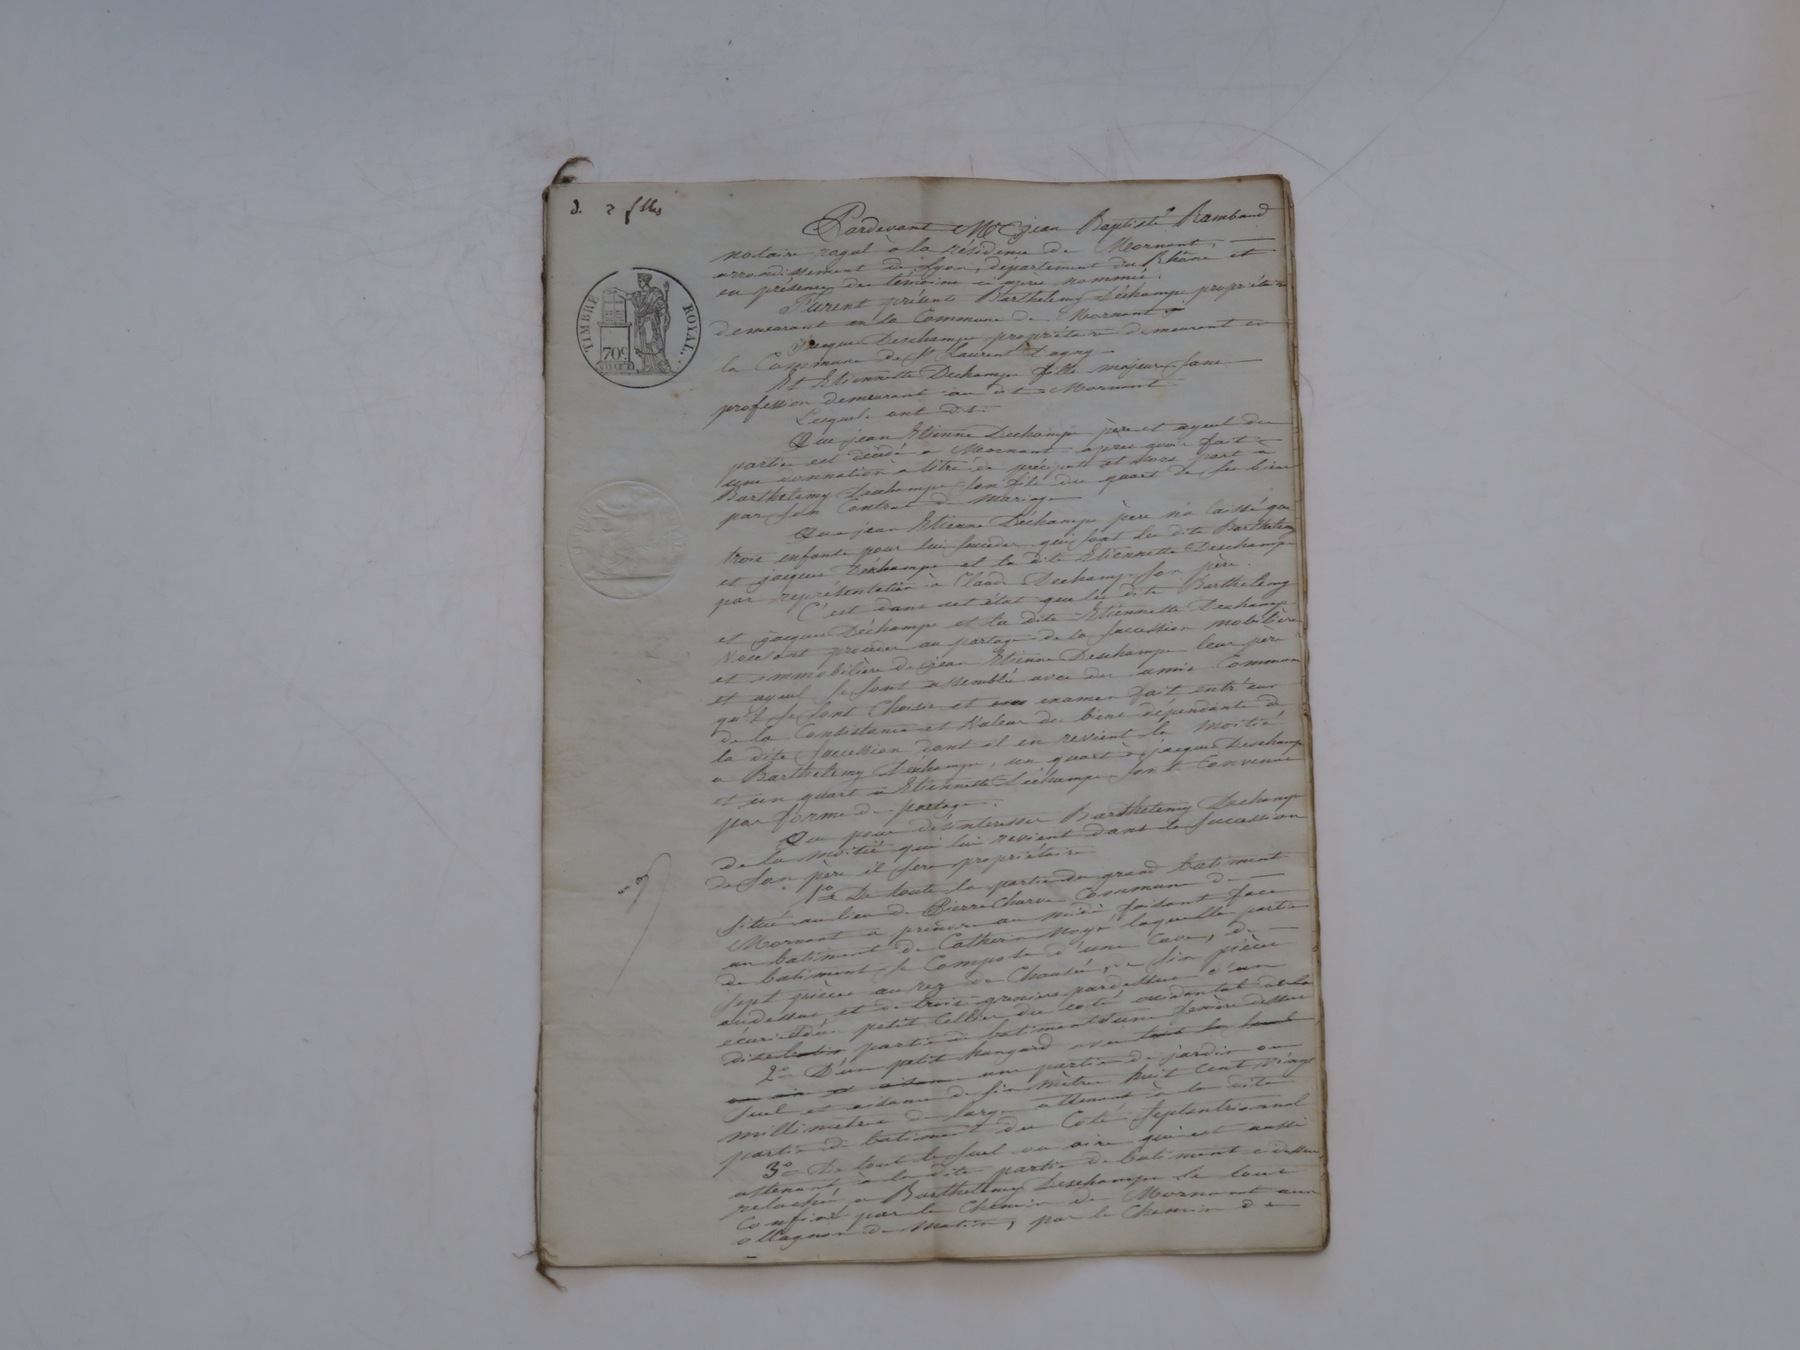 d. 2 flles
TIMBRE ROYAL
70c
Pardevant Me Jean Baptiste Rambaud
notaire royal à la résidence de Mornant,
arrondissement de Lyon, département du Rhône et
en présence des temoins ci après nommés.
Furent présent Barthelemy Dechamps propriétaire
demeurant en la Commune de Mornant
Jacques Deschamps propriétaire demeurant en
la Commune de St Laurent d'agny
Et Etiennette Dechamps fille majeure sans
profession demeurant au dit Mornant
Lesquels ont dit
Que jean Etienne Dechamps père et ayeul des
parties est décédé a Mornant après avoir fait
une donnation a titre de préciput et hors part à
Barthelemy Deschamps son fils du quart de ses biens
par son Contrat de mariage
Que jean Etienne Déchamps père n'a laissé que
trois enfants pour lui succeder qui sont les dits Barthelemy
et jacques Déchamps et la dite Etiennette Deschamps
par représentation à Claude Dechamps son père.
C'est dans cet état que les dits Barthelemy
et jacques Déchamps et la dite Etiennette Dechamps
voulant procéder au partage de la succession mobilière
et immobilière de jean Etienne Deschamps leur père
et ayeul se sont assemblés avec des amis Communs
qu'ils se sont Choisis et examen fait entr'eux
de la Consistance et Valeur des biens dépendants de
la dite succession dont il en revient la moitié
a Barthelemy Déchamps, un quart à jacques Deschamps
et un quart a Etiennette Déchamps sont Convenus
par forme de partage.
Que pour désinteresser Barthelemy Dechamps
de la moitié qui lui revient dans la succession
de son père il sera propriétaire
1° De toute la partie du grand batiment
situé au lieu de Pierre Charve Commune de
Mornant à prendre au midi faisant face
au batiment de Catherin Noyé laquelle partie
de batiment se Compose d'une Cave, de
sept pièces au rez de Chaussée, de six pièces
audessus, et de trois greniers pardessus d'un
écurie d'un petit Cellier du coté occidental de la
dite partie de batiment d'une fenière dessus
2° D'un petit hangard avec
suel et aisance de six mètres huit cent vingt
millimetres de large attenant à la dite
partie de batiment du Coté septentrional
3° De tout le suel ou aire qui est aussi
attenant à la dite partie de batiment cidessus
relaché a Barthelemy Deschamps le tout
Confiné par le Chemin de Mornant aux
par le Chemin de